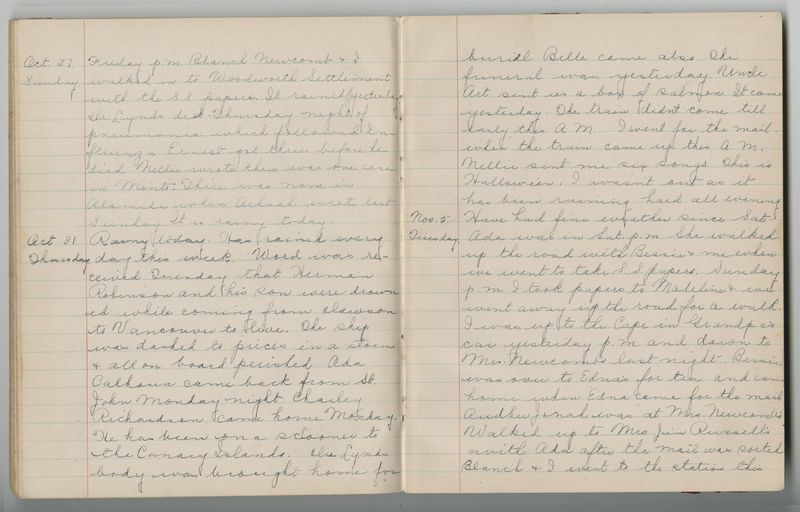 Oct. 27 Friday p.m Blanch Newcomb & I
Sunday walked in to Woodworth Settlement
with the S S papers. It rained yesterday
Lynds died Thursday night of
pneumonia which followed In-
fluenza. Ernest got there before he
died. Nellie wrote there was one case
in Minto. There was none in
Alameda when wrote last
Sunday It is rainy today.
Oct. 31 Rainy today. Has rained every
Thursday day this week. Word was re-
ceived Tuesday that Herman
Robinson and his son were drown
ed while coming from Dawson
to Vancouver to live. The ship
was dashed to pieces in a storm
& all on board perished Ada
Calhoun came back from St.
John Monday night Charley
Richardson came home Monday.
He has been on a schooner to
the Canary Islands. Lynds
body was brought home for
burial Belle came also. The
funeral was yesterday. Uncle
Art sent us a box of salmon It came
yesterday. The train didn't come till
early this A M. I went for the mail
when the train came up this A.M.
Nellie sent me six songs. This is
Halloween. I wasn't out as it
has been raining hard all evening
Nov. 5 Have had fine weather since Sat.
Tuesday Ada was in Sat. p.m. She walked
up the road with Bessie & me when
we went to take S S papers. Sunday
p.m. I took papers to Madeline & we
went away up the road for a walk.
I was up to the Cape in Grandpa's
car yesterday p.m. and down to
Mrs. Newcombs last night. Bessie
was over to Edna's for tea and came
home when Edna came for the mail
Jonah was at Mrs. Newcombs
Walked up to Mrs. Jim Russell's
with Ada after the mail was sorted
Blanch & I went to the station this